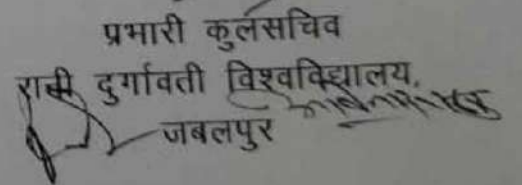 प्रभारी कुलसचिव
रानी दुर्गावती विश्वविद्यालय,
जबलपुर